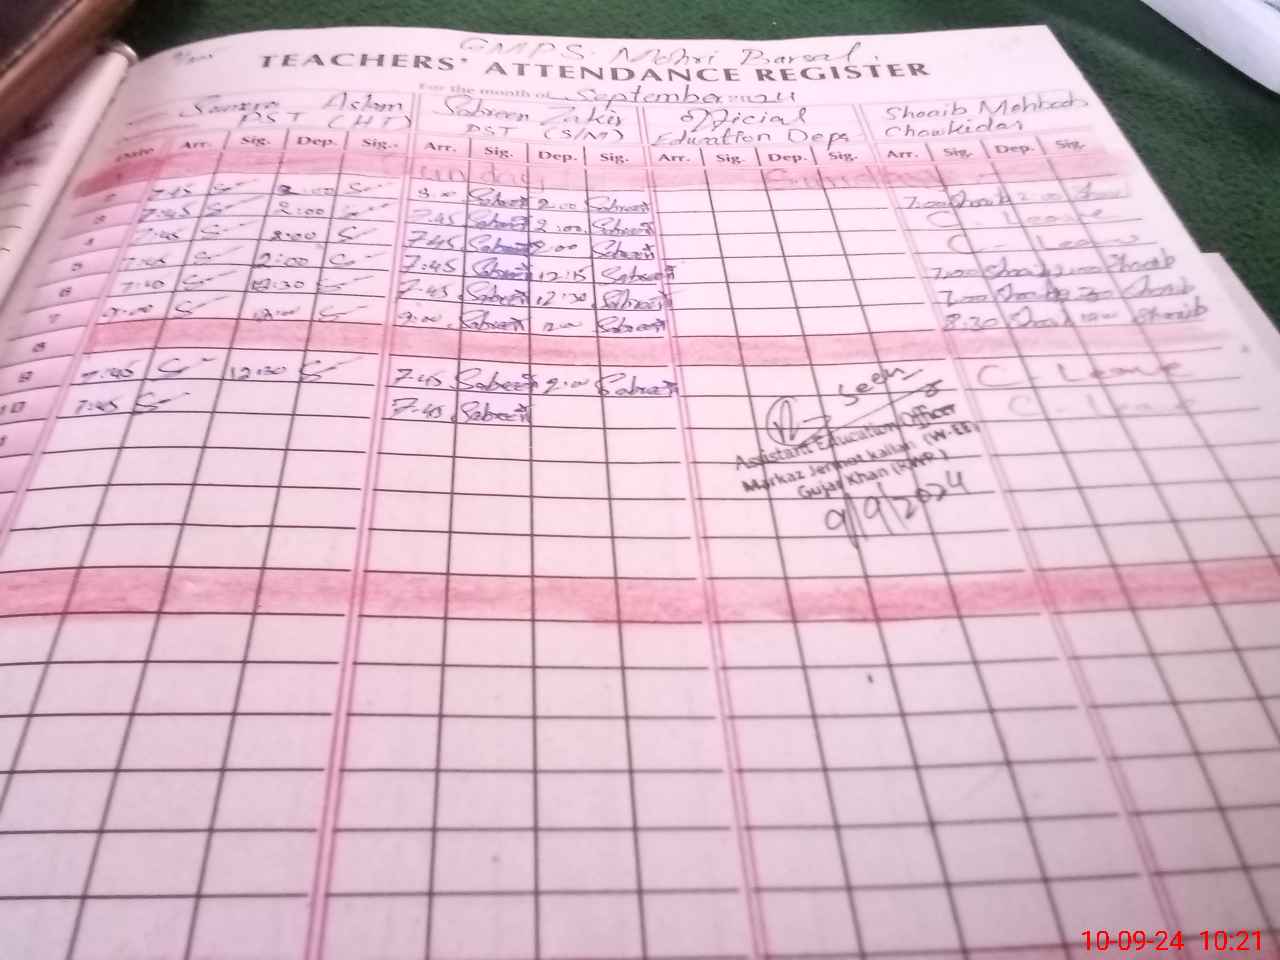 GMPS. Mohri Barsal.
TEACHERS' ATTENDANCE REGISTER
For the month of September 2024
Aslam Sabreen Zakir Official Shoaib Mehboob
PST (HT) PST (S/M) Education Deps Chowkidar
Date Arr. Sig. Dep. Sig. Arr. Sig. Dep. Sig. Arr. Sig. Dep. Sig. Arr. Sig. Dep. Sig.
1 Sunday
2 7:45 2:00 8:00 Sabreen 2:00 Sabreen 7:00 Shoaib 2:00 Shoaib
3 7:45 2:00 7:45 Sabreen 2:00 Sabreen C. Leave
4 7:45 2:00 7:45 Sabreen 2:00 Sabreen C. Leave
5 7:45 2:00 7:45 Sabreen 12:15 Sabreen 7:00 Shoaib 2:00 Shoaib
6 7:40 12:30 7:45 Sabreen 12:30 Sabreen 7:00 Shoaib Shoaib
7 9:00 12:00 9:00 Sabreen 12:00 Sabreen 8:30 Shoaib Shoaib
8
9 7:45 12:30 7:45 Sabreen 2:00 Sabreen C. Leave
10 7:45 7:45 Sabreen C. Leave
Seen
Assistant Education Officer
Markaz Jermot Kallan (W-EE)
Gujar Khan (RWP)
9/9/2024
10-09-24 10:21